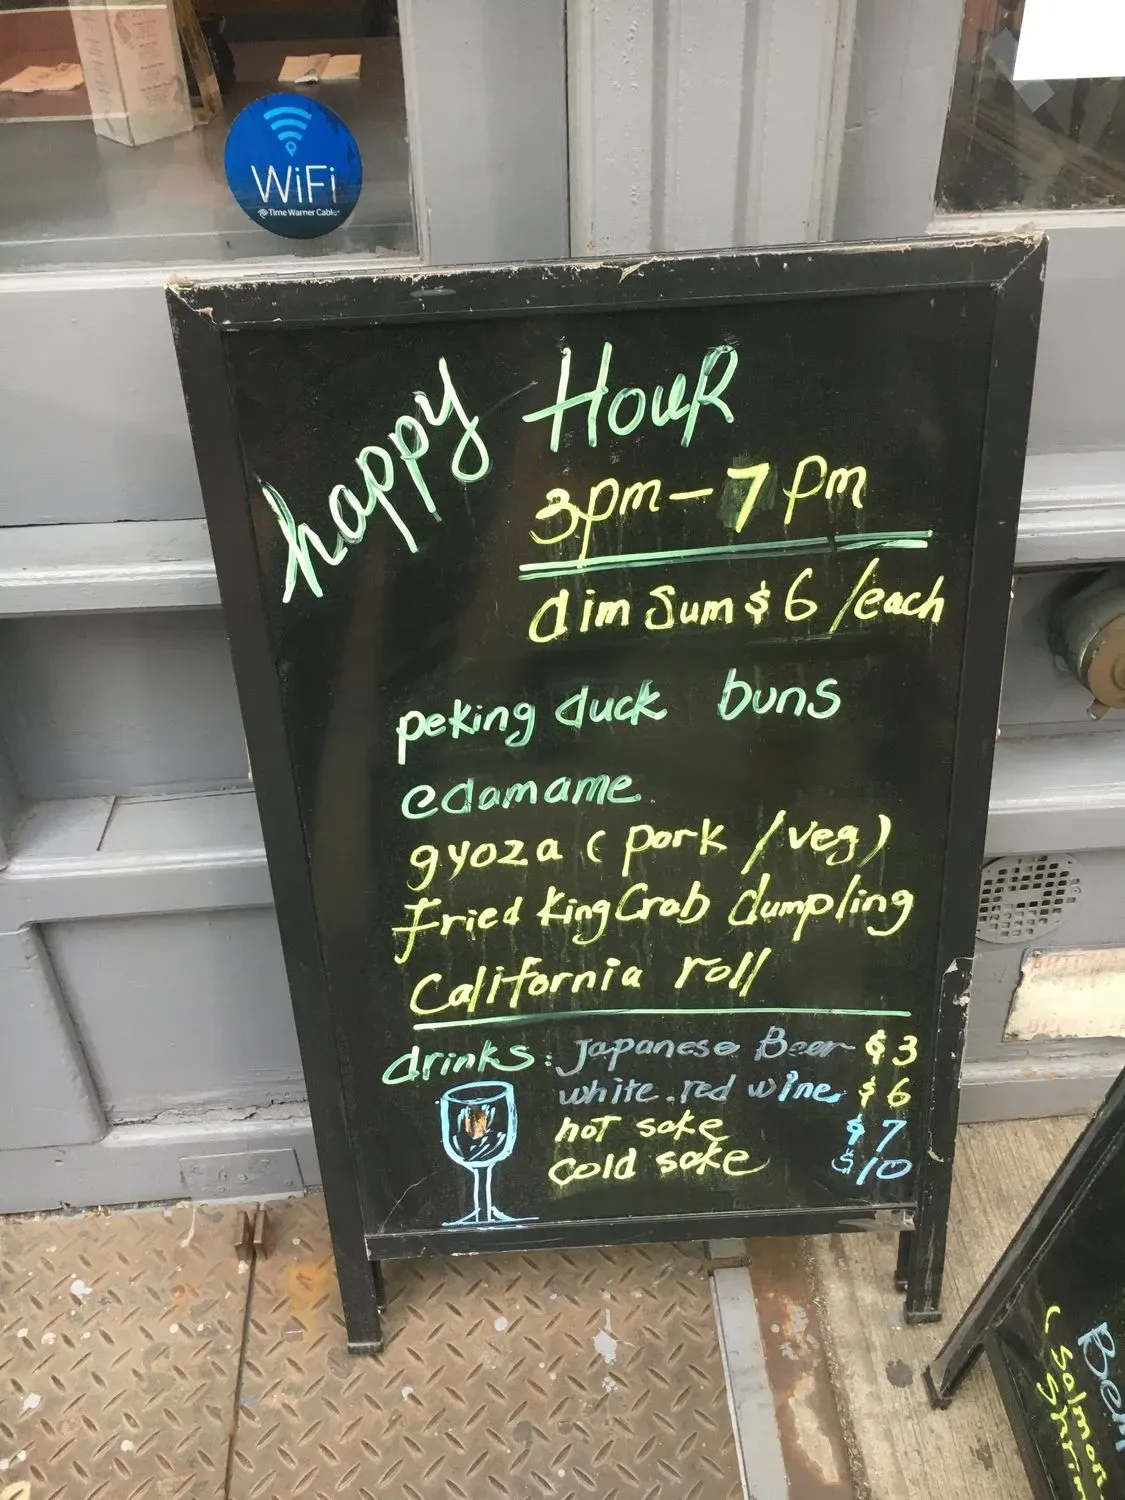 WiFi
@ Time Warner Cable
happy Hour
3pm - 7pm
dim sum $6 /each
peking duck buns
edamame
gyoza (pork / veg)
Fried King Crab dumpling
California roll
drinks: Japanese Beer $3
white . red wine $6
hot sake $7
cold sake $10
(Salmon